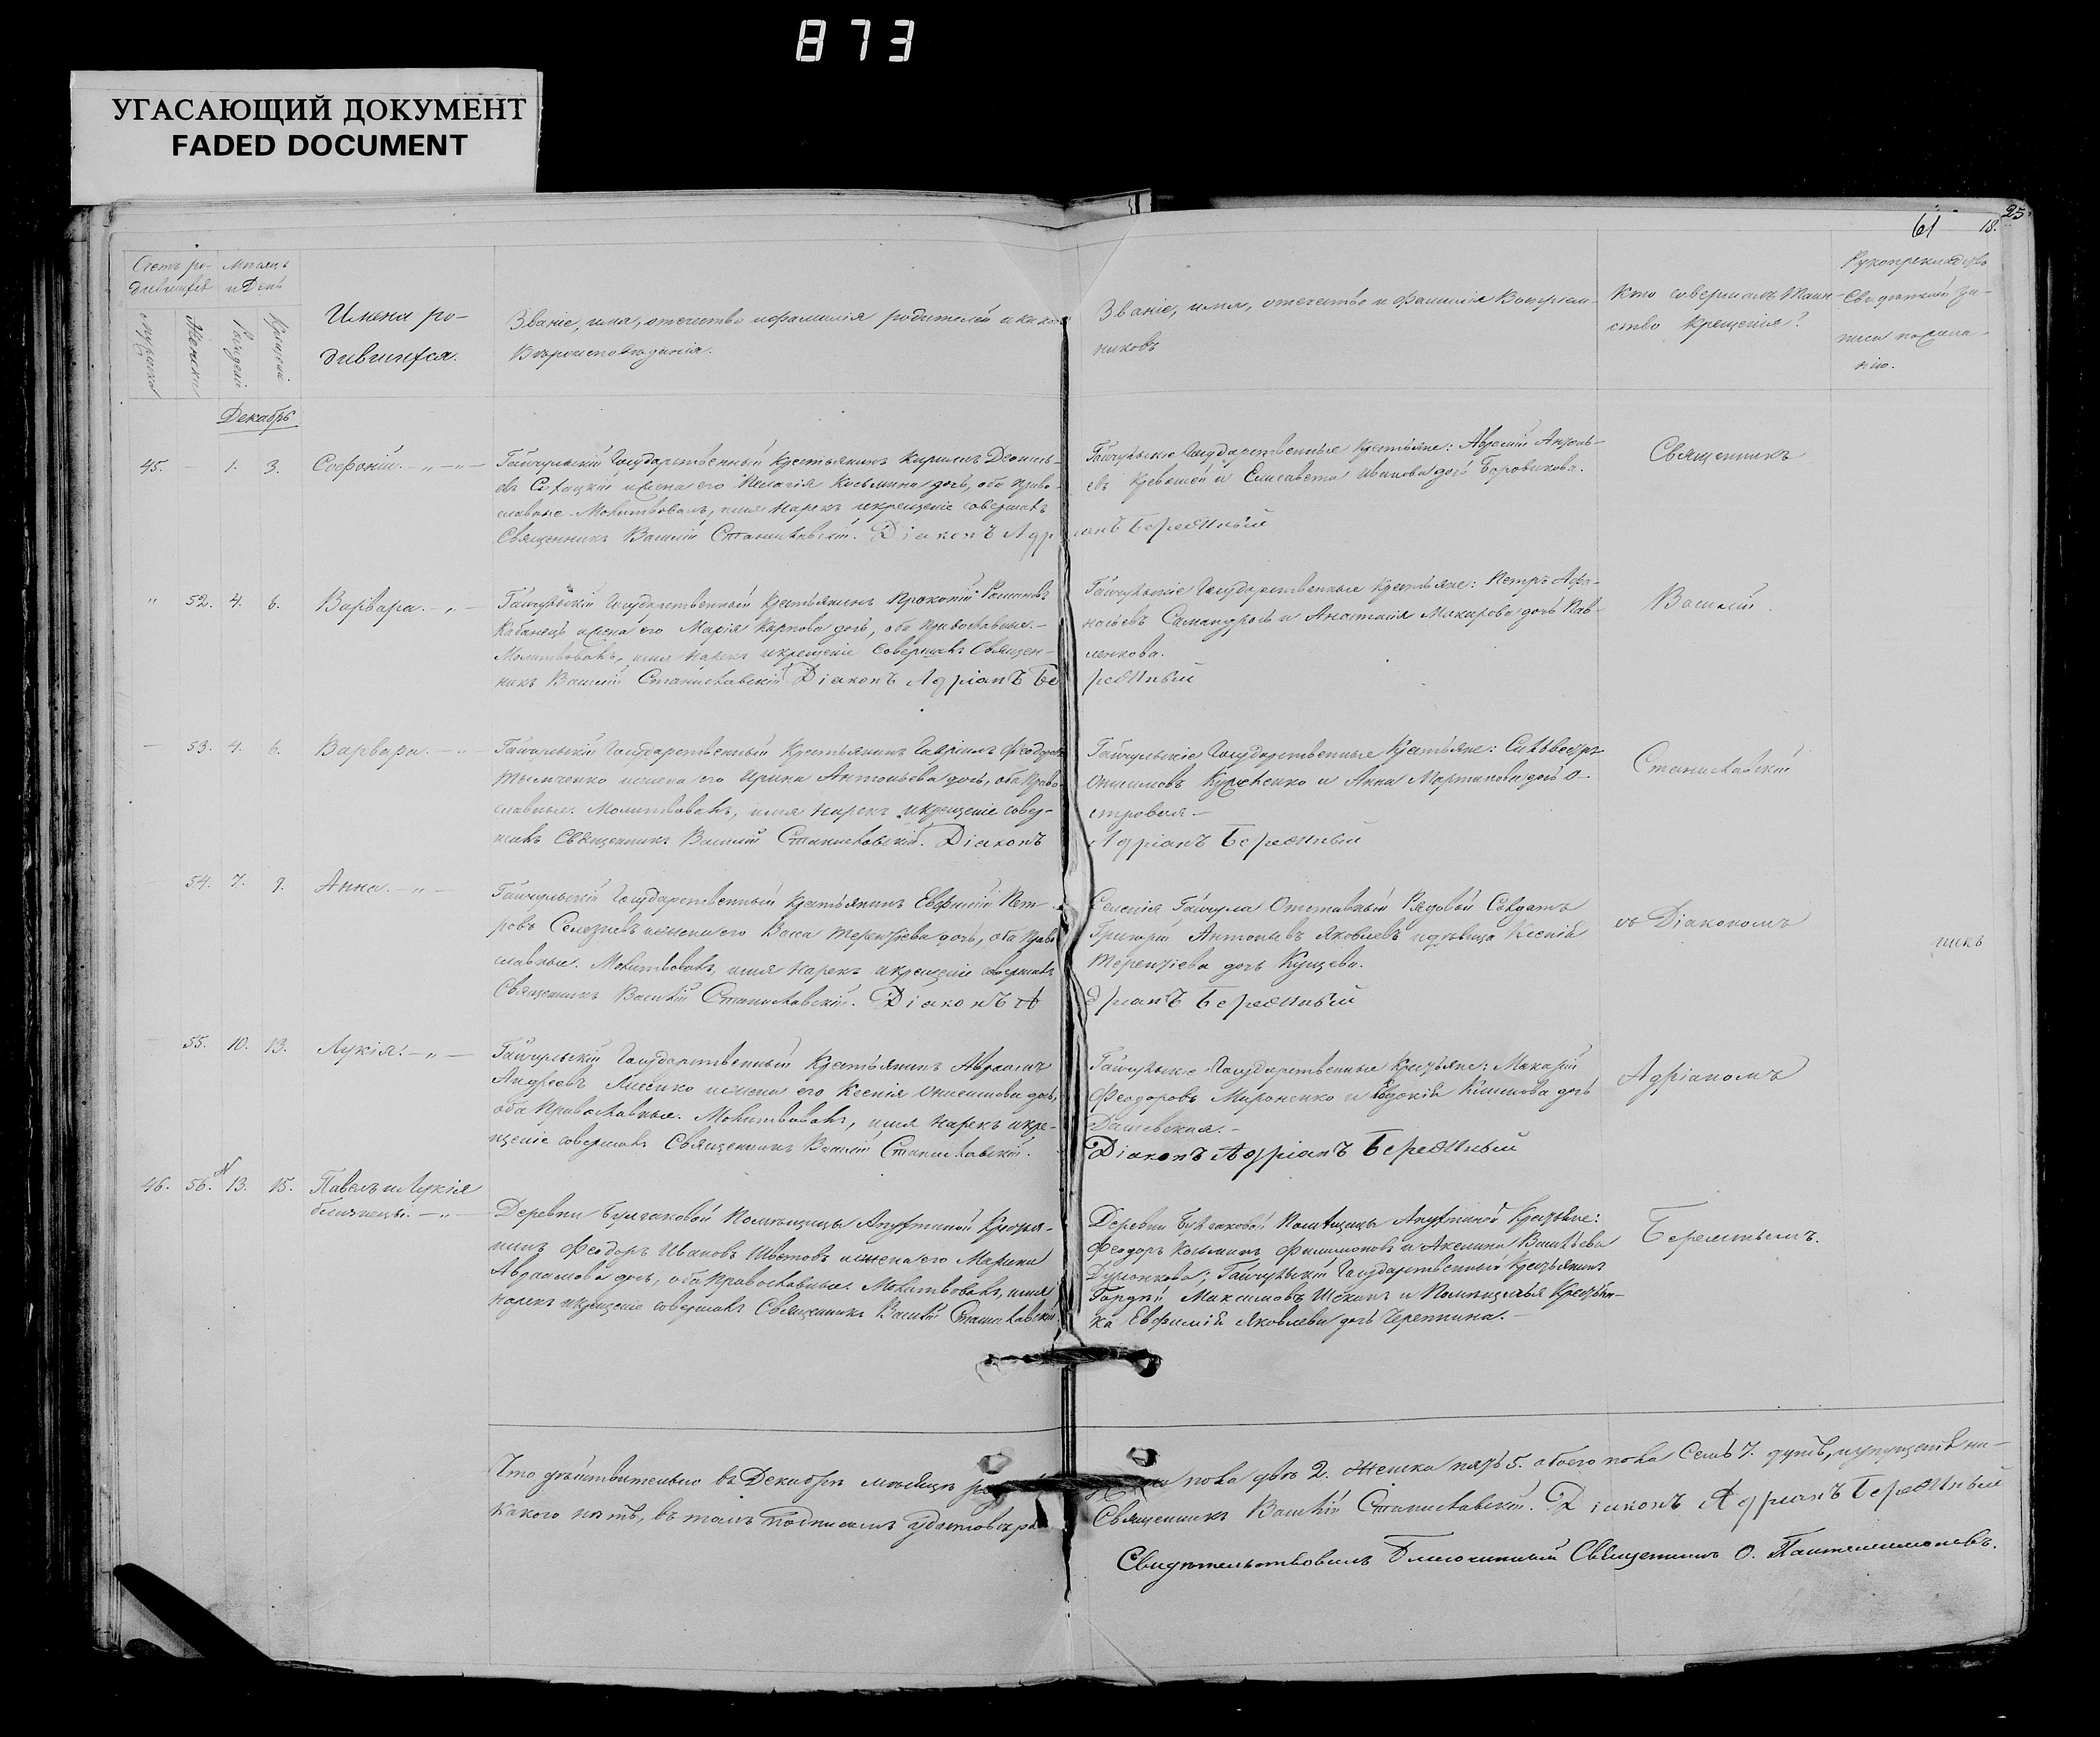 873
УГАСАЮЩИЙ ДОКУМЕНТ
FADED DOCUMENT
25.
61
18.
Счетъ ро-
дившихся
Мѣсяцъ
и День
Мужеска
Женска
Рожденія
Крещенія
Имена ро-
дившихся.
Званіе, имя, отечество и фамилія родителей и како
Вѣроисповѣданія.
Званіе, имя, отечество и фамилія Воспріем-
никовъ
Кто совершалъ Таин-
ство Крещенія?
Рукоприкладство
Свидѣтелей за-
писи по жела-
нію.
Декабрь
45. 1. 3. Софоній. — „ — „ —
Гайчульскій Государственный Крестьянинъ Кирилъ Деонись-
евъ и жена его Пелагія Косьмина дочь, оба Право-
славные. Молитвовалъ, имя нарекъ и крещеніе совершалъ
Священникъ Василій Станиславскій. Діаконъ Адр
Гайчульскіе Государственные Крестьяне:
и Елисавета Иванова дочь Боровикова.
анъ Бережный
Священникъ
„ 52. 4. 6. Варвара. — „ —
Гайчульскій Государственный Крестьянинъ Прокопій Романовъ
Кабанецъ и жена его Марія Карпова дочь, оба Православные. —
Молитвовалъ, имя нарекъ и крещеніе совершалъ Священ-
никъ Василій Станиславскій Діаконъ Адріанъ Бе
Гайчульскіе Государственные Крестьяне: Петръ Афа-
насьевъ и Анастасія Макарова дочь Пав-
ленкова.
режный
Василій
— 53. 4. 6. Варвара. — „ —
Гайчульскій Государственный Крестьянинъ Гавріилъ Феодоровъ
Тымченко и жена его Ирина Антоньева дочь, оба Право-
славные. Молитвовалъ, имя нарекъ и крещеніе совер-
шилъ Священникъ Василій Станиславскій. Діаконъ
Гайчульскіе Государственные Крестьяне: Сильвестръ
Онисимовъ и Анна Мартинова дочь О-
стровая. —
Адріанъ Бережный
Станиславскій
54. 7. 9. Анна. — „ —
Гайчульскій Государственный Крестьянинъ Евфимій Пет-
ровъ Селезневъ и жена его Васса Терентіева дочь, оба Право-
славные. Молитвовалъ, имя нарекъ и крещеніе совершалъ
Священникъ Василій Станиславскій. Діаконъ А
Селенія Гайчула Отставный Рядовый Солдатъ
Григорій Антоньевъ Яковлевъ и дѣвица Ксенія
Терентіева дочь Кущева.
дріанъ Бережный
съ Діакономъ
55. 10. 13. Лукія. — „ —
Гайчульскій Государственный Крестьянинъ Авраамъ
Андреевъ Лисенко и жена его Ксенія Онисимова дочь,
оба Православные. Молитвовалъ, имя нарекъ и кре-
щеніе совершалъ Священникъ Василій Станиславскій.
Гайчульскіе Государственные Крестьяне: Макарій
Феодоровъ Мироненко и Климова дочь
Дашевская. —
Діаконъ Адріанъ Бережный
Адріаномъ
46. 56. 13. 15. Павелъ и Лукія
близнецы. — „ —
Деревни Булгаковой Помѣщицы Апухтиной Крестья-
нинъ Феодоръ Ивановъ и жена его Марина
Авраамова дочь, оба Православные. Молитвовалъ, имя
нарекъ и крещеніе совершалъ Священникъ Василій Станиславскій.
Деревни Булгаковой Помѣщицы Апухтиной Крестьяне:
Феодоръ Косьминъ Филимоновъ и Акелина Васильева
Гайчульскій Государственный Крестьянинъ
Гордѣй Максимовъ и Помѣщичья Крестьян-
ка Евфимія Яковлева дочь Черепнина. —
Бережнымъ.
Что дѣйствительно въ Декабрѣ мѣсяцѣ
пола два 2. Женска пять 5. обоего пола Семь 7. душъ, и пропуска ни-
какого нѣтъ, въ томъ подписомъ
Священникъ Василій Станиславскій. Діаконъ Адріанъ Бережный
Свидѣтельствовалъ Благочинный Священникъ О. Пантелеимоновъ.